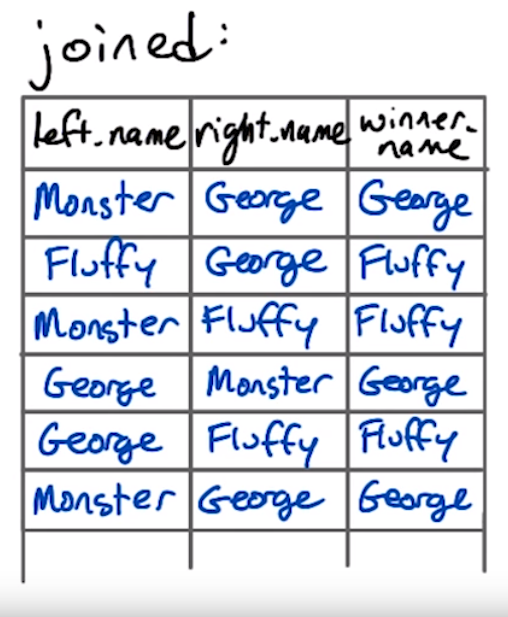 joined:
left_name right_name winner_name
Monster George George
Fluffy George Fluffy
Monster Fluffy Fluffy
George Monster George
George Fluffy Fluffy
Monster George George